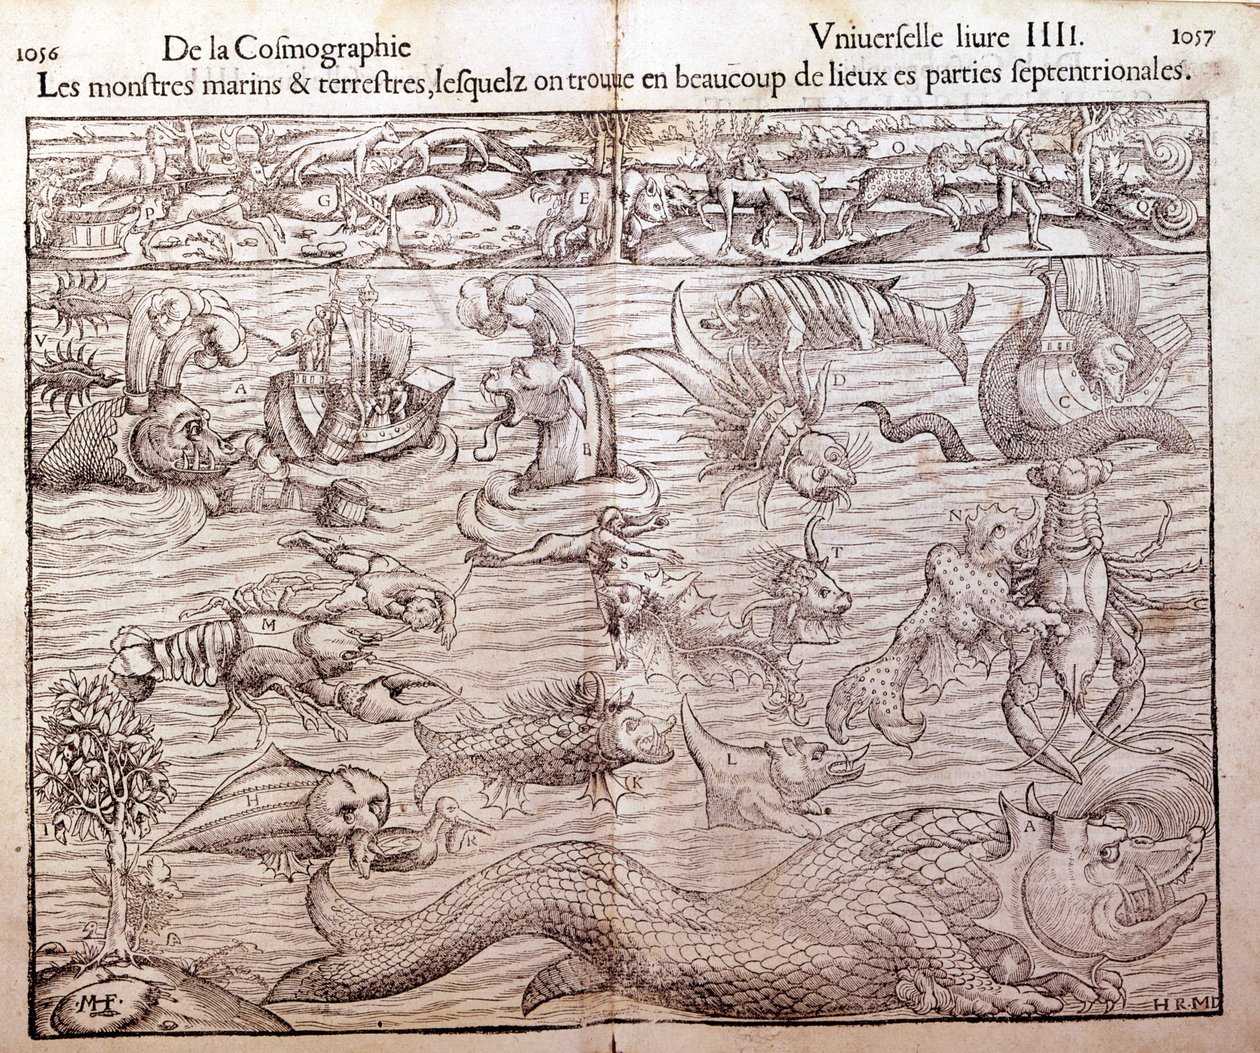 1056 De la Coſmographie Vniuerſelle liure IIII. 1057
Les monſtres marins & terreſtres, leſquelz on trouue en beaucoup de lieux es parties ſeptentrionales.
P G E O Q
V A B D C
M S T N
I H R K L A
MF HRMD